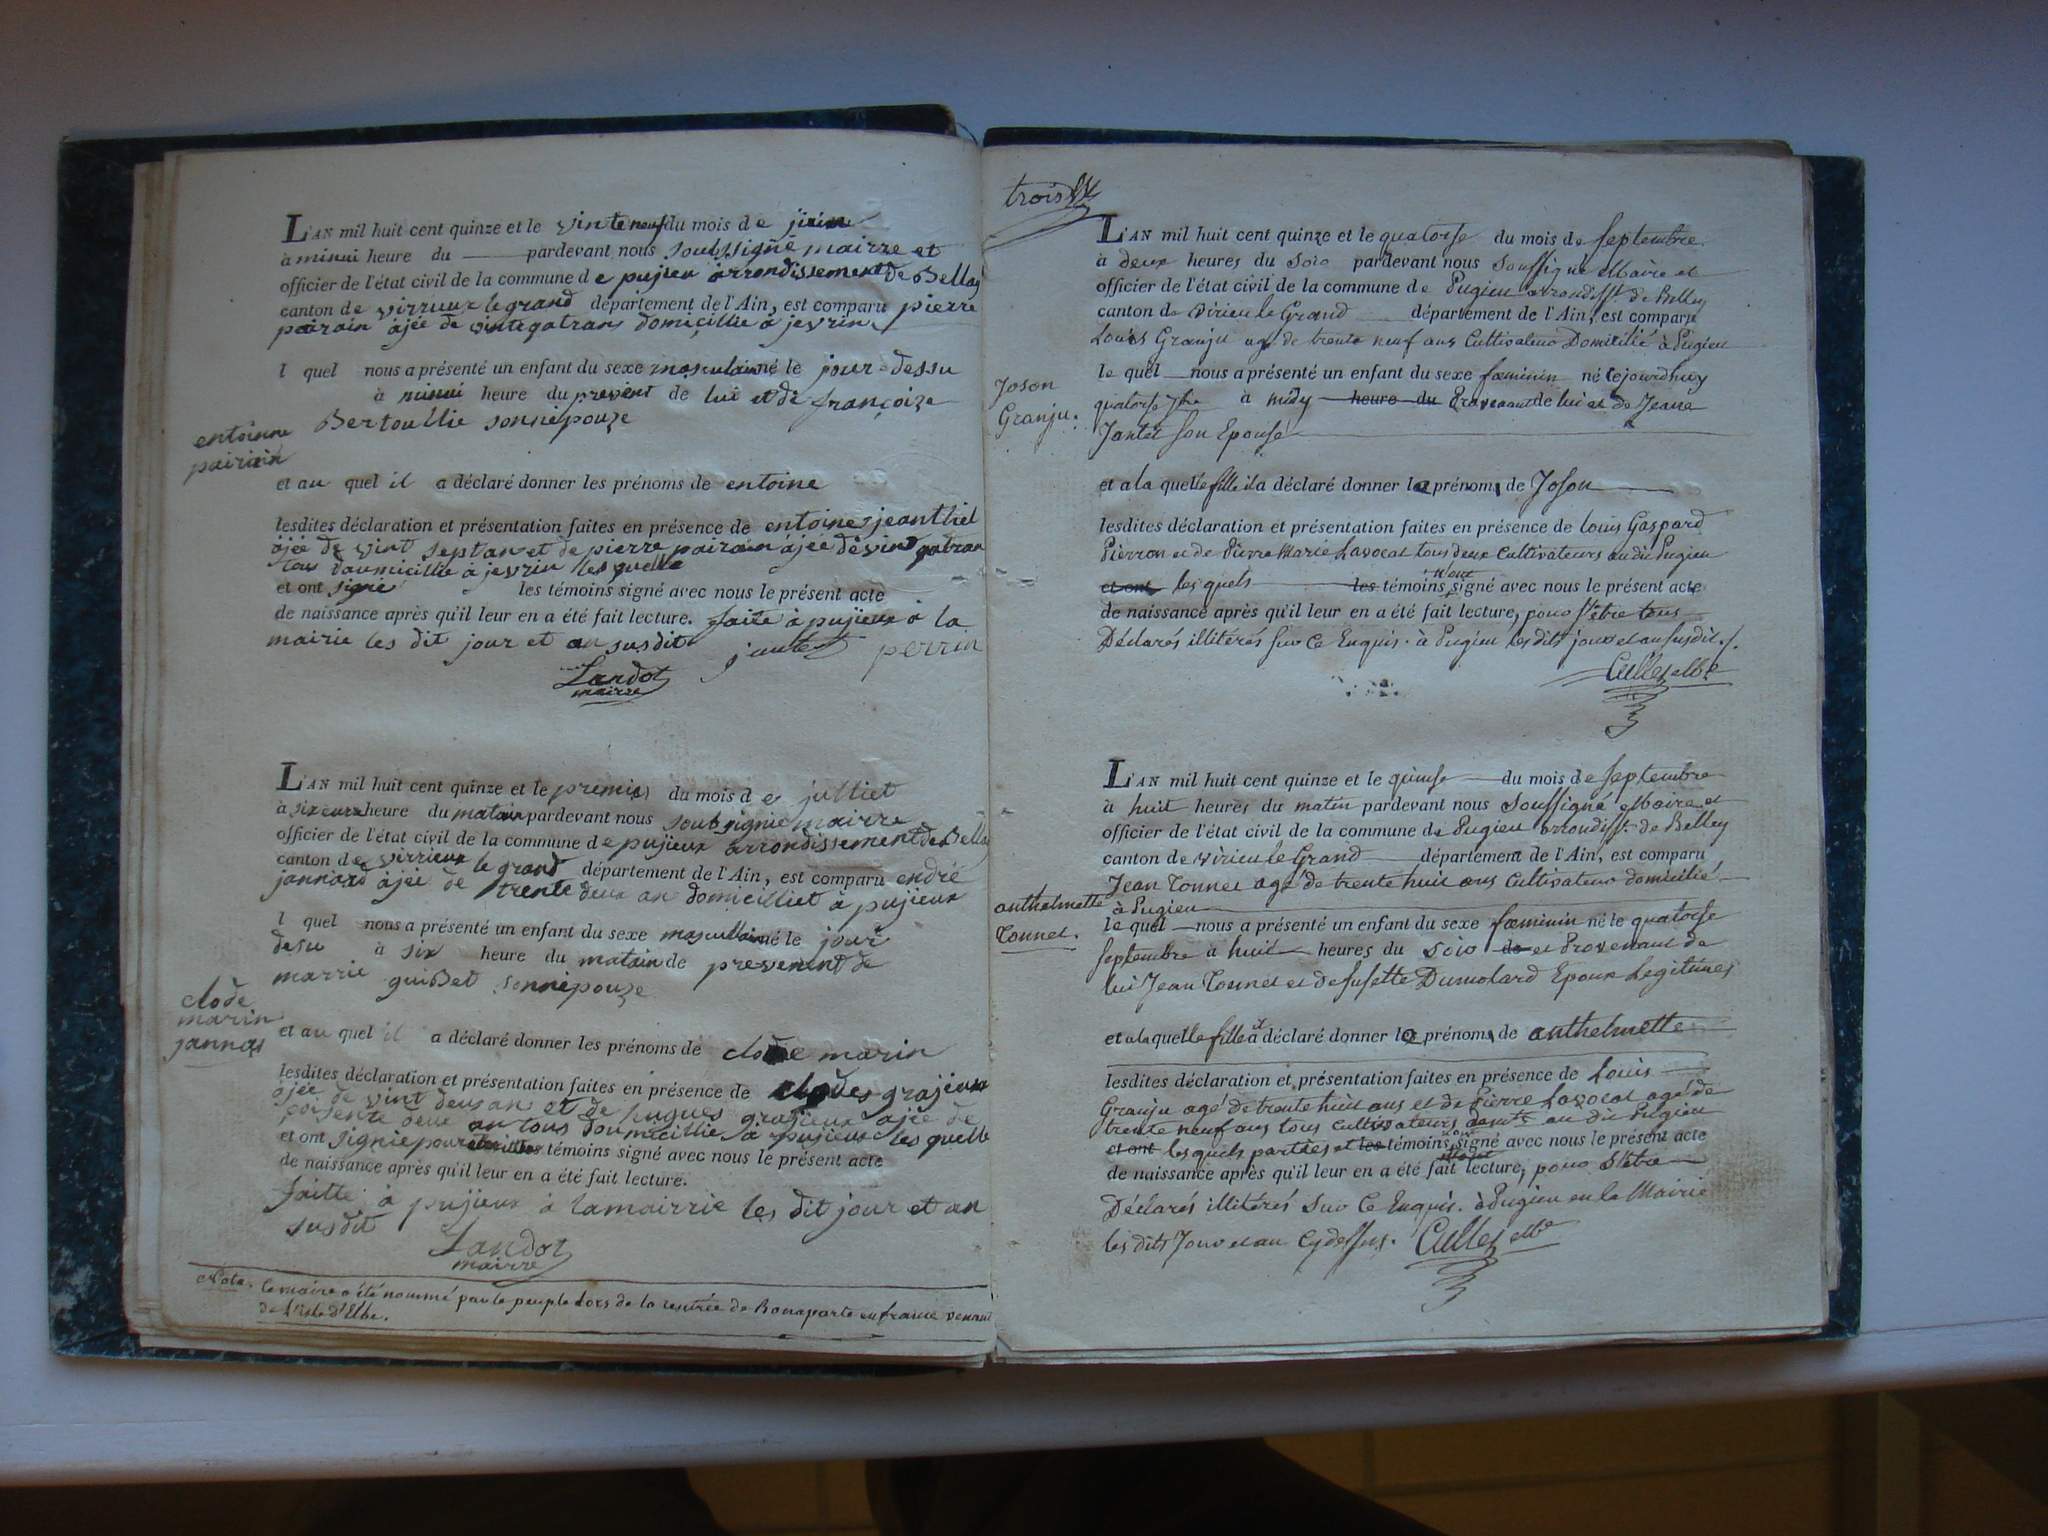 L'AN mil huit cent quinze et le vinteneuf du mois de juin
à minui heure du pardevant nous soussigné mairre et
officier de l'état civil de la commune de pujieu arrondissement de Bellay
canton de virrieux le grand département de l'Ain, est comparu pierre
pairain àjée de vintequatrans domicillié à jevrin
l quel nous a présenté un enfant du sexe masculain né le jour dessu
à minui heure du prevent de lui et de françoize
Bertoullie sonnépouze
entoinne
pairain
et au quel il a déclaré donner les prénoms de entoine
lesdites déclaration et présentation faites en présence de entoine jeanthel
àjée de vint septan et de pierre pairain àjée de vint quatran
tous doumicillie à jevrin les quelle
et ont signié les témoins signé avec nous le présent acte
de naissance après qu'il leur en a été fait lecture. faite à pujieux à la
mairie les dit jour et an susdit jantet perrin
Landot
mairre
L'AN mil huit cent quinze et le premie du mois de julliet
à six eure heure du matain pardevant nous soubsignié mairre
officier de l'état civil de la commune de pujieux arrondissement de Bella
canton de virrieux le grand département de l'Ain, est comparu endré
jannard àjée de trente deux an domicilliet à pujieux
l quel nous a présenté un enfant du sexe masculain né le jour
desu à six heure du matain de prevenent de
marrie guibet sonnépouze
clode
marin
jannas
et au quel il a déclaré donner les prénoms de clode marin
lesdites déclaration et présentation faites en présence de clodes grajeux
àjée de vint deus an et de hugues grajieux àjée de
soisente deux an tous doumicillie à pujieux les quelle
et ont signie pour témoins signé avec nous le présent acte
de naissance après qu'il leur en a été fait lecture.
faitte à pujieux à lamairrie les dit jour et an
susdit
Landot
mairre
Nota. Ce maire a été nommé par le peuple Lors de la rentrée de Bonaparte en france venant
de L'isle d'Elbe.
trois
L'AN mil huit cent quinze et le quatorse du mois de septembre
à deux heures du soir pardevant nous soussigné Maire et
officier de l'état civil de la commune de Pugieu arrondisst. de Belley
canton de Virieu le Grand département de l'Ain, est comparu
Louis Granju agé de trente neuf ans Cultivateur Domicilié à Pugieu
le quel nous a présenté un enfant du sexe fœminin né cejourdhuy
quatorse 7bre à midy heure du Provenant de lui et de Jeane
Jantet son Epouse
Joson
Granju.
et a la quelle fille il a déclaré donner le prénom de Joson
lesdites déclaration et présentation faites en présence de Louis Gaspard
Pierron et de Pierre Marie Lavocat tous deux Cultivateurs au dit Pugieu
et ont les quels les témoins n'ont signé avec nous le présent acte
de naissance après qu'il leur en a été fait lecture, pour s'etre tous
Déclarés illitérés sur ce Enquis. à Pugieu les dits jour et an susdit.
Cullet Mre
L'AN mil huit cent quinze et le quinse du mois de septembre
à huit heures du matin pardevant nous soussigné Maire et
officier de l'état civil de la commune de Pugieu arrondisst. de Belley
canton de Virieu le Grand département de l'Ain, est comparu
Jean Tonnet agé de trente huit ans Cultivateur domicilié
à Pugieu
anthelmette
Tonnet.
le quel nous a présenté un enfant du sexe fœminin né le quatorse
septembre à huit heures du soir de et Provenant de
lui Jean Tonnet et de Susette Dumolard Epoux Legitimes
et a la quelle fille il a déclaré donner le prénom de anthelmette
lesdites déclaration et présentation faites en présence de Louis
Granju agé de trente huit ans et de Pierre Lavocat agé de
trente neuf ans tous cultivateurs demts. au dit Pugieu
et ont les quels parties et les témoins n'ont signé avec nous le présent acte
de naissance après qu'il leur en a été fait lecture, pour s'etre
Déclarés illitérés sur ce Enquis. à Pugieu en la Mairie
les dits Jour et an Cydessus. Cullet Mre